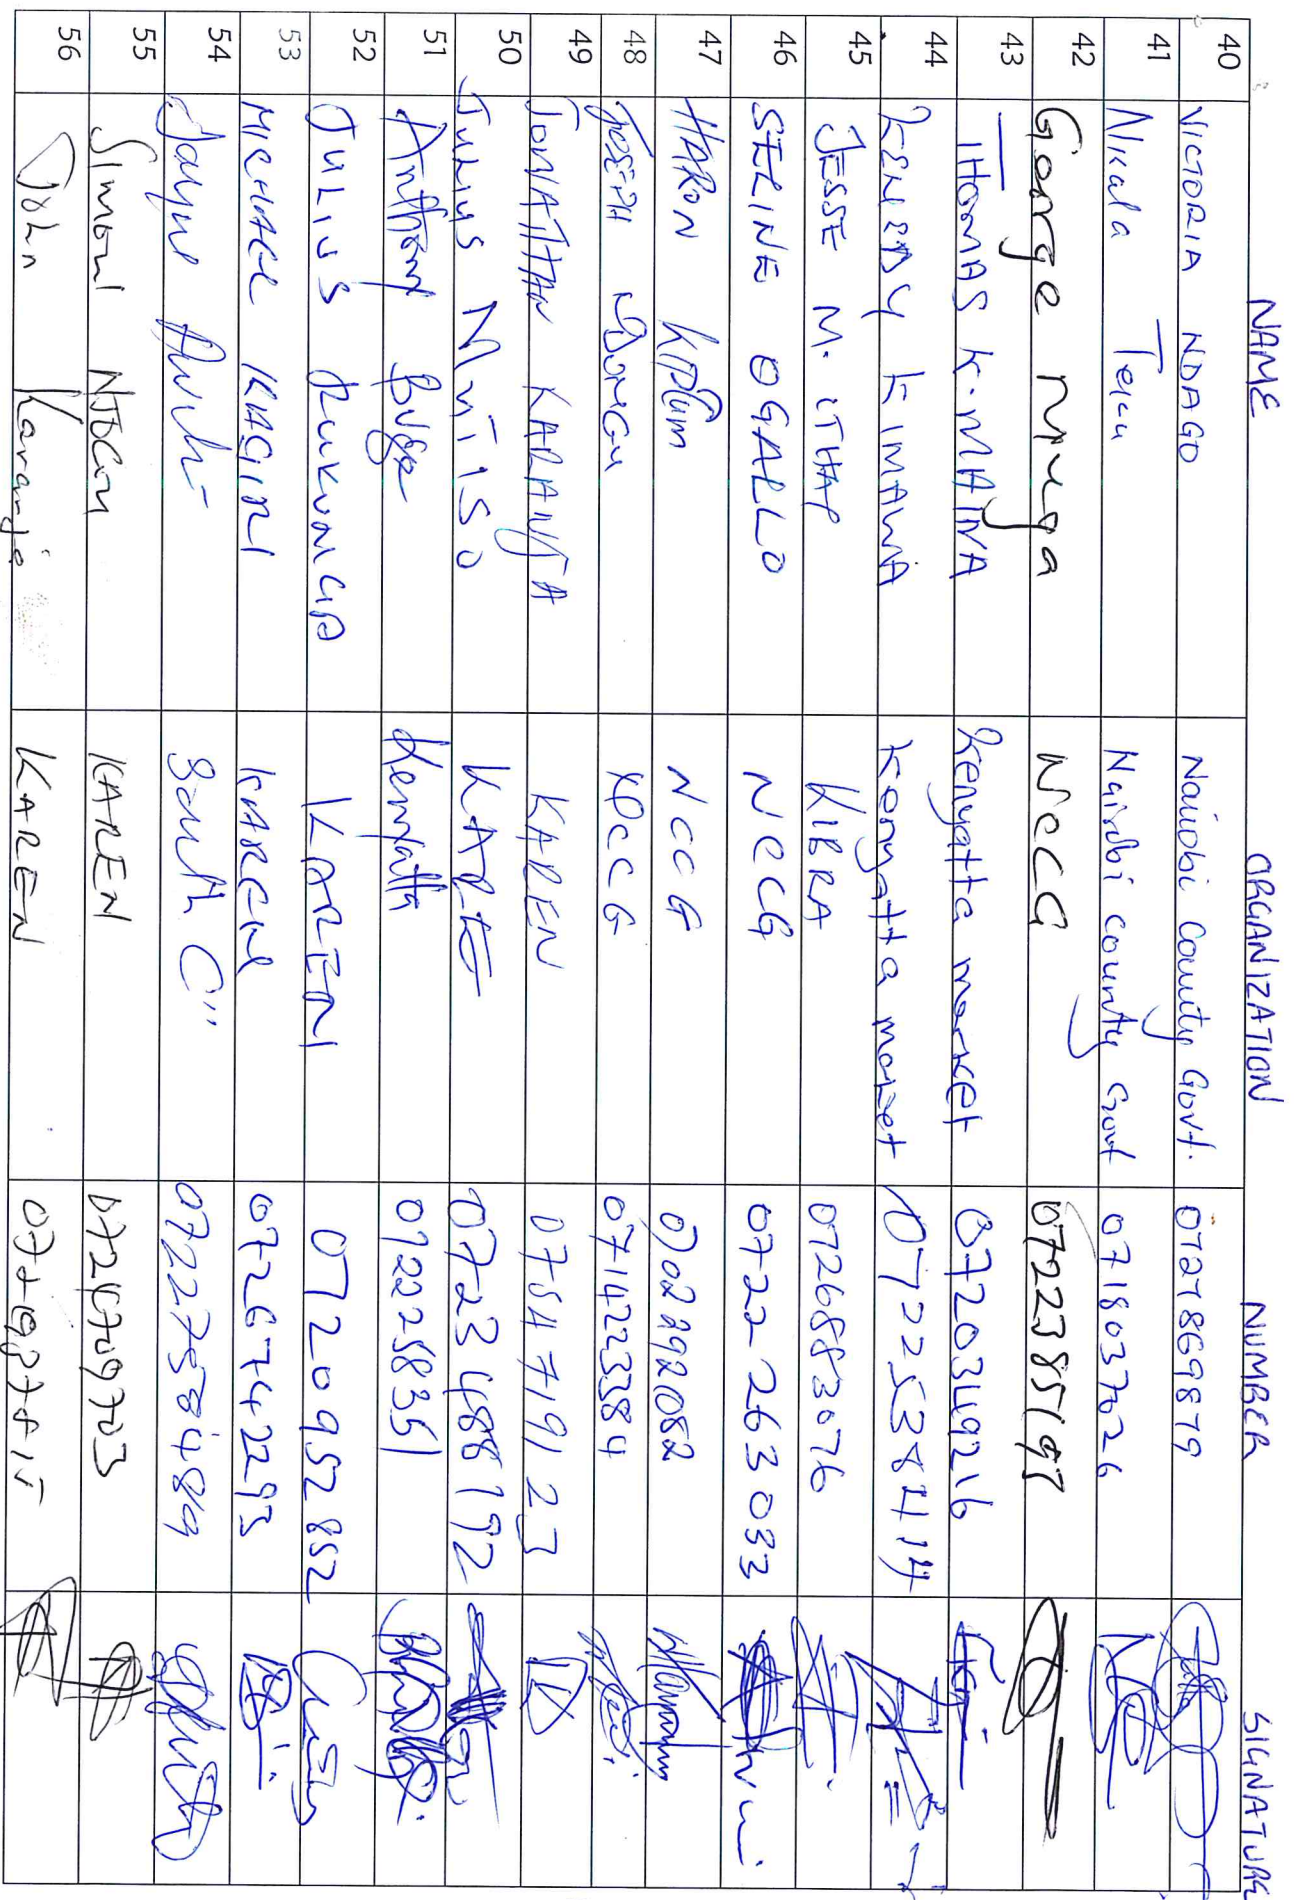 NAME ORGANIZATION NUMBER SIGNATURE
40 VICTORIA NDAGO Nairobi County Govt. 0727869879
41 Nkala Nairobi County Govt 0718037026
42 George njuga NCCG 0722385197
43 THOMAS K. MAINA Kenyatta market 0720349216
44 KENEDY KIMANA Kenyatta market 0722538414
45 JESSE M. KIBRA 0726883076
46 SELINE OGALLO NCCG 0722263033
47 HARON NCCG 0702292082
48 JOSEPH NDUNGU NCCG 0714223384
49 JONATHAN KARANJA KAREN 0784719123
50 JULIUS MUTISO KAREN 0723488192
51 Anthony Kenyatta 0722258351
52 JULIUS KAREN 0720952852
53 MICHAEL KAGIRI KAREN 0726742293
54 South C" 0722758489
55 Simon KAREN
56 John Karanja KAREN